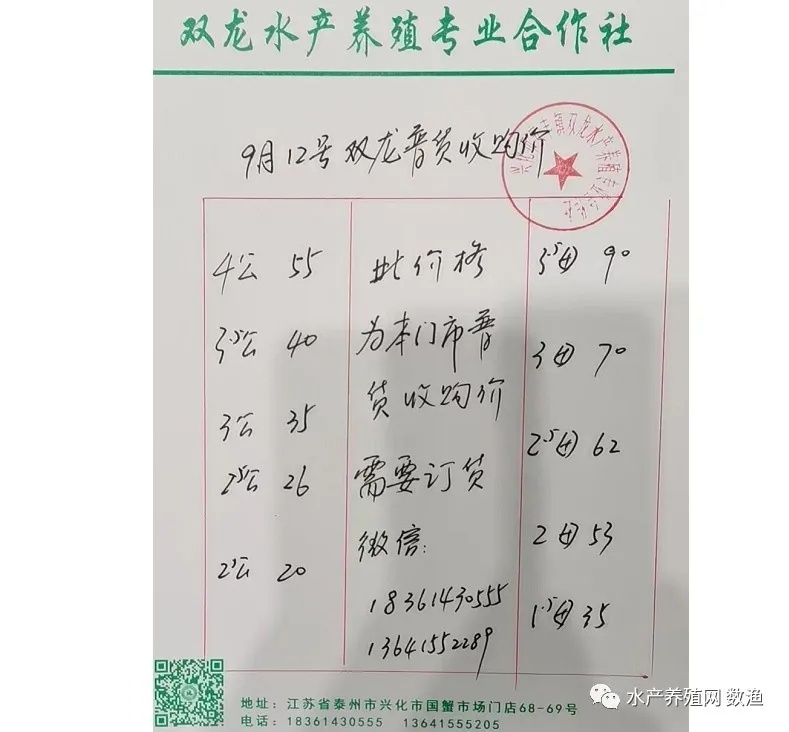 双龙水产养殖专业合作社
9月12号 双龙普货收购价
4公 55
3.5公 40
3公 35
2.5公 26
2公 20
此价格
为本门市普
货收购价
需要订货
微信:
18361430555
13641552289
3.5母 90
3母 70
2.5母 62
2母 53
1.5母 35
地址：江苏省泰州市兴化市国蟹市场门店68-69号
电话：18361430555 13641555205
水产养殖网 数渔